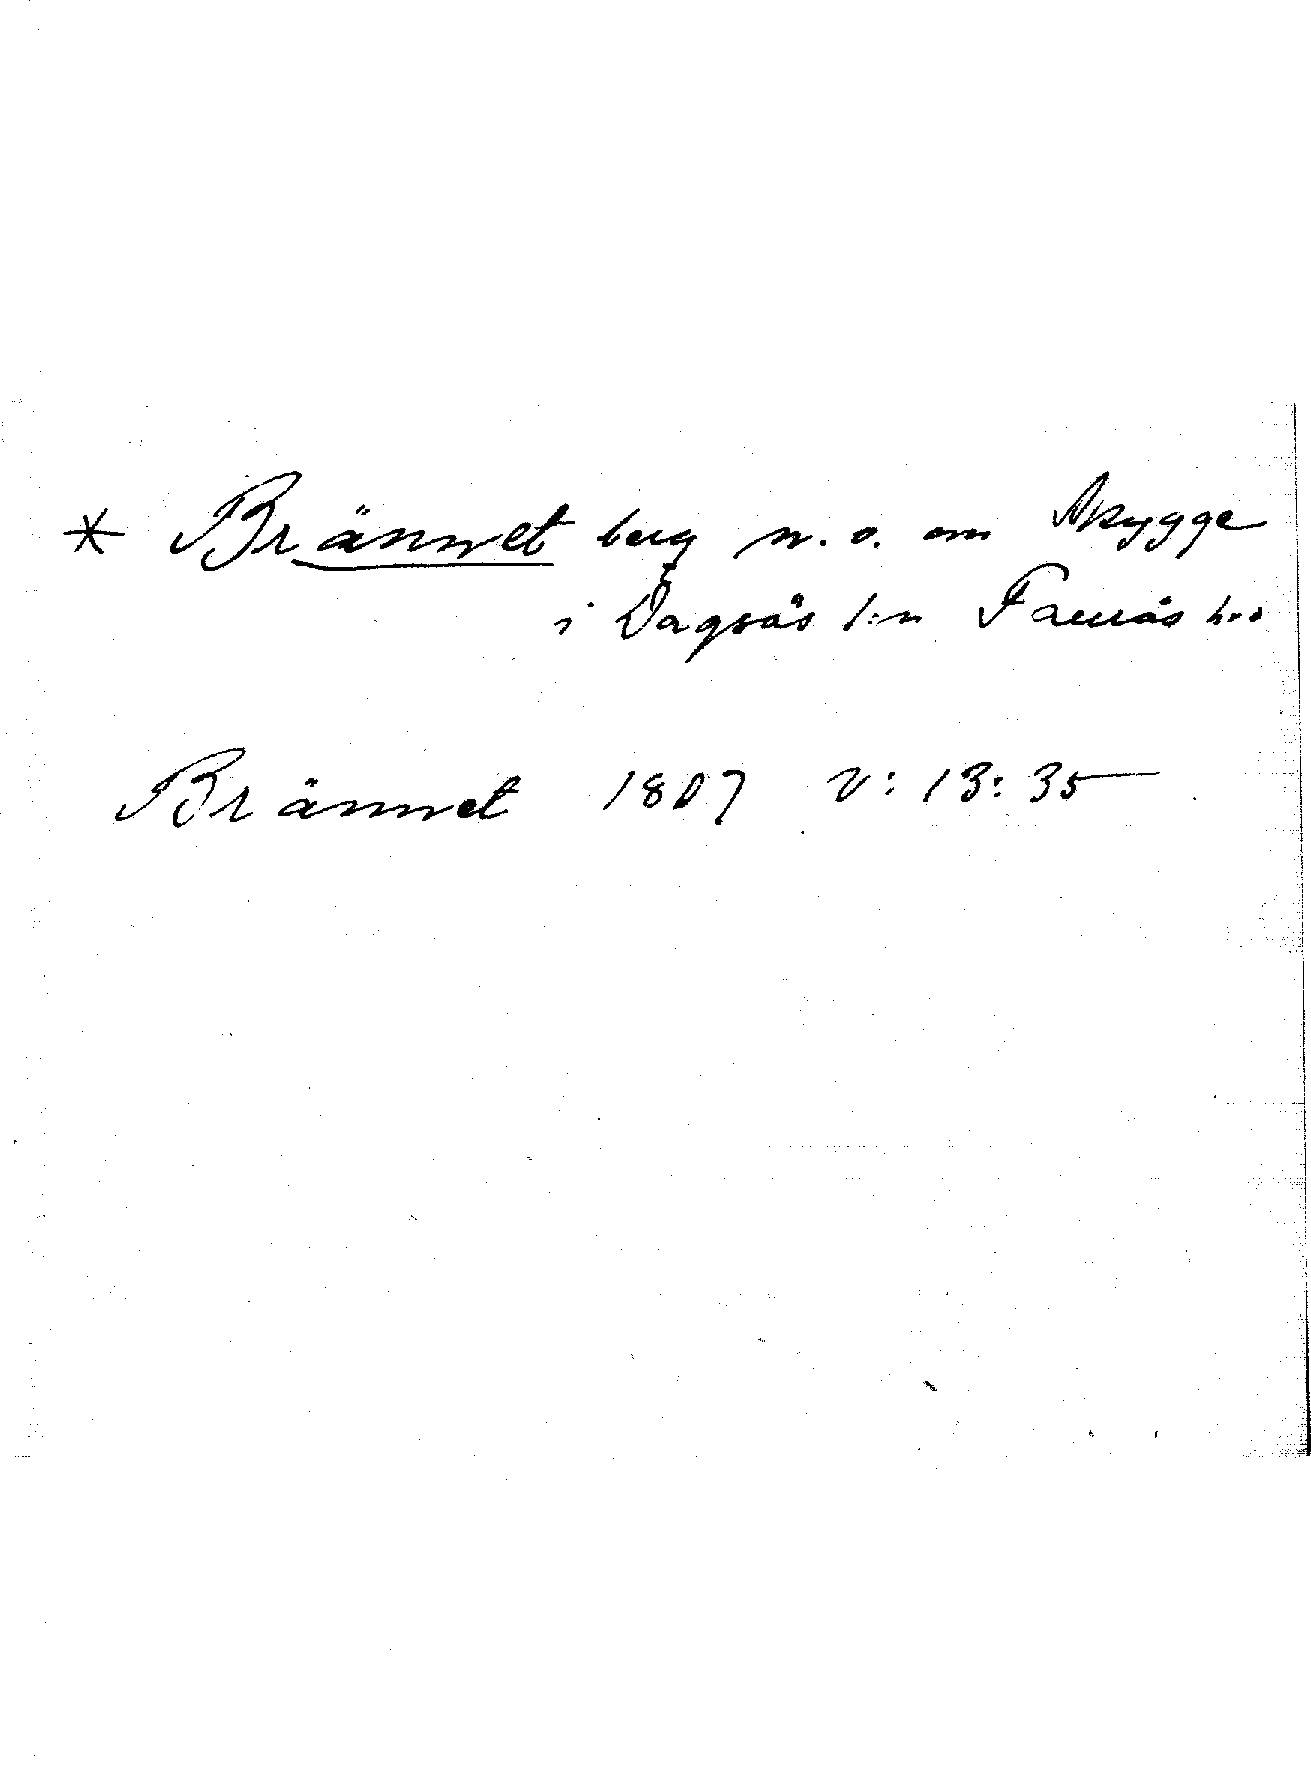 * Brännet berg n. o. om Skygge
i Dagsås s:n Faurås h:d
Brännet 1807 V: 13: 35